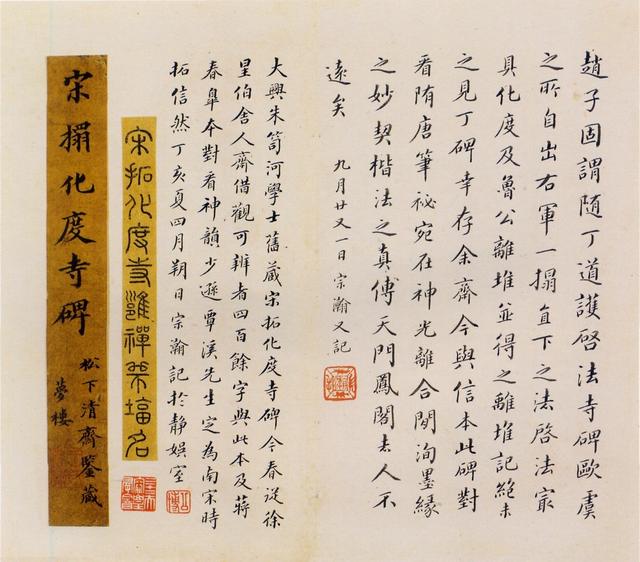 趙子固謂隨丁道護啓法寺碑歐虞
之所自出右軍一搨直下之法啓法寂
具化度及魯公離堆並得之離堆記絕未
之見丁碑幸存余齋今與信本此碑對
看隋唐筆祕宛在神光離合閒洵墨緣
之妙契楷法之真傳天門鳳閣去人不
遠矣 九月廿又一日宗瀚又記
大興朱笥河學士舊藏宋拓化度寺碑今春從徐
星伯舍人齋借觀可辨者四百餘字與此本及蔣
春皐本對看神韻少遜覃溪先生定為南宋時
拓信然丁亥夏四月朔日宗瀚記於靜娛室
宋拓化度寺邕禪師塔名
宋搨化度寺碑
松下清齋鑒藏
夢樓